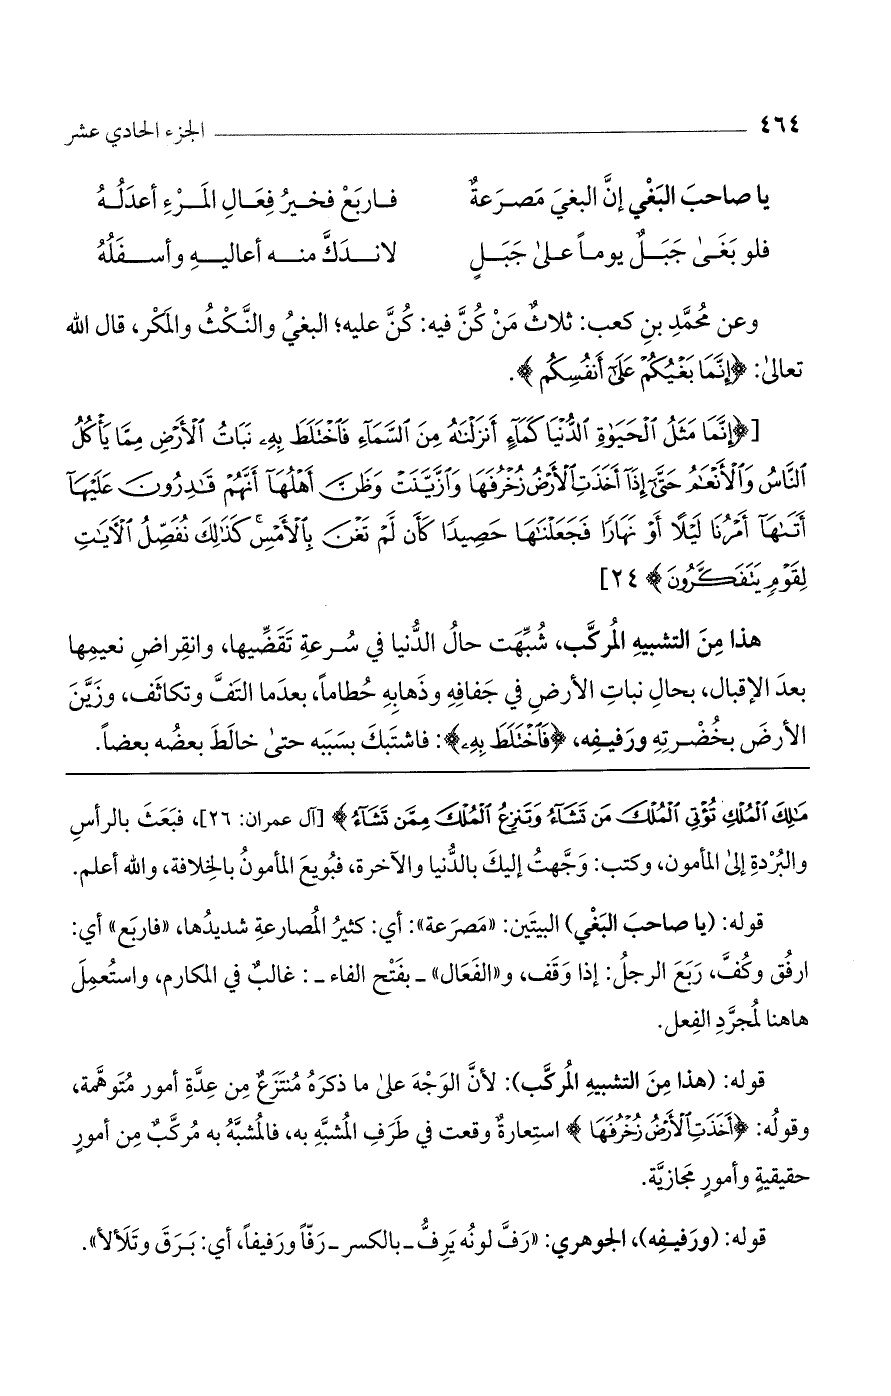 ٤٦٤ الجزء الحادي عشر
يا صاحبَ البَغْيِ إنَّ البغيَ مَصـرَعةٌ فـاربَعْ فخـيرُ فِعَـالِ المَـرْءِ أعدَلُـهُ
فلو بَغَـىٰ جَبَـلٌ يومـاً عـلىٰ جَبَـلٍ لانـدَكَّ منـه أعاليـهِ وأسـفَلُهُ
وعن محُمَّدِ بنِ كعب: ثلاثٌ مَنْ كُنَّ فيه: كُنَّ عليه؛ البغيُ والنَّكْثُ والمَكْر، قال الله
تعالىٰ: ﴿إِنَّمَا بَغْيُكُمْ عَلَىٰٓ أَنفُسِكُم﴾.
[﴿إِنَّمَا مَثَلُ ٱلْحَيَوٰةِ ٱلدُّنْيَا كَمَآءٍ أَنزَلْنَٰهُ مِنَ ٱلسَّمَآءِ فَٱخْتَلَطَ بِهِۦ نَبَاتُ ٱلْأَرْضِ مِمَّا يَأْكُلُ
ٱلنَّاسُ وَٱلْأَنْعَٰمُ حَتَّىٰٓ إِذَآ أَخَذَتِ ٱلْأَرْضُ زُخْرُفَهَا وَٱزَّيَّنَتْ وَظَنَّ أَهْلُهَآ أَنَّهُمْ قَٰدِرُونَ عَلَيْهَآ
أَتَىٰهَآ أَمْرُنَا لَيْلًا أَوْ نَهَارًا فَجَعَلْنَٰهَا حَصِيدًا كَأَن لَّمْ تَغْنَ بِٱلْأَمْسِ ۚ كَذَٰلِكَ نُفَصِّلُ ٱلْآيَٰتِ
لِقَوْمٍ يَتَفَكَّرُونَ﴾ ٢٤]
هذا مِنَ التشبيهِ المُركَّب، شُبِّهَت حالُ الدُّنيا في سُرعةِ تَقَضِّيها، وانقِراضِ نعيمِها
بعدَ الإقبال، بحالِ نباتِ الأرضِ في جَفافِهِ وذَهابِهِ حُطاماً، بعدَما التَفَّ وتكاثَف، وزَيَّنَ
الأرضَ بخُضْـرتِهِ ورَفيـفِه، ﴿فَٱخْتَلَطَ بِهِۦ﴾: فاشتَبكَ بسَبَبه حتىٰ خالَطَ بعضُه بعضاً.
مَٰلِكَ ٱلْمُلْكِ تُؤْتِى ٱلْمُلْكَ مَن تَشَآءُ وَتَنزِعُ ٱلْمُلْكَ مِمَّن تَشَآءُ﴾ [آل عمران: ٢٦]، فبَعَثَ بالرأسِ
والبُرْدةِ إلىٰ المأمون، وكتب: وَجَّهتُ إليكَ بالدُّنيا والآخرة، فبُويعَ المأمونُ بالخِلافة، والله أعلم.
قوله: (يا صاحبَ البَغْي) البيتَين: «مَصرَعة»: أي: كثيرُ المُصارعةِ شديدُها، «فاربَع» أي:
ارفُق وكُفَّ، رَبَعَ الرجلُ: إذا وَقَف، و«الفَعَال» ـ بفَتْح الفاء ـ : غالبٌ في المكارم، واستُعمِلَ
هاهنا لمُجرَّدِ الفِعل.
قوله: (هذا مِنَ التشبيهِ المُركَّب): لأنَّ الوَجْهَ علىٰ ما ذكرَهُ مُنتَزَعٌ مِن عِدَّةِ أمور مُتَوهَّمة،
وقولُه: ﴿أَخَذَتِ ٱلْأَرْضُ زُخْرُفَهَا﴾ استِعارةٌ وقعت في طَرَفِ المُشبَّهِ به، فالمُشبَّهُ به مُركَّبٌ مِن أمورٍ
حقيقيةٍ وأمورٍ مَجازيَّة.
قوله: (ورَفيفِه)، الجوهري: «رَفَّ لونُه يَرِفُّ ـ بالكسر ـ رَفّاً ورَفيفاً، أي: بَـرَقَ وتَلَألأ».